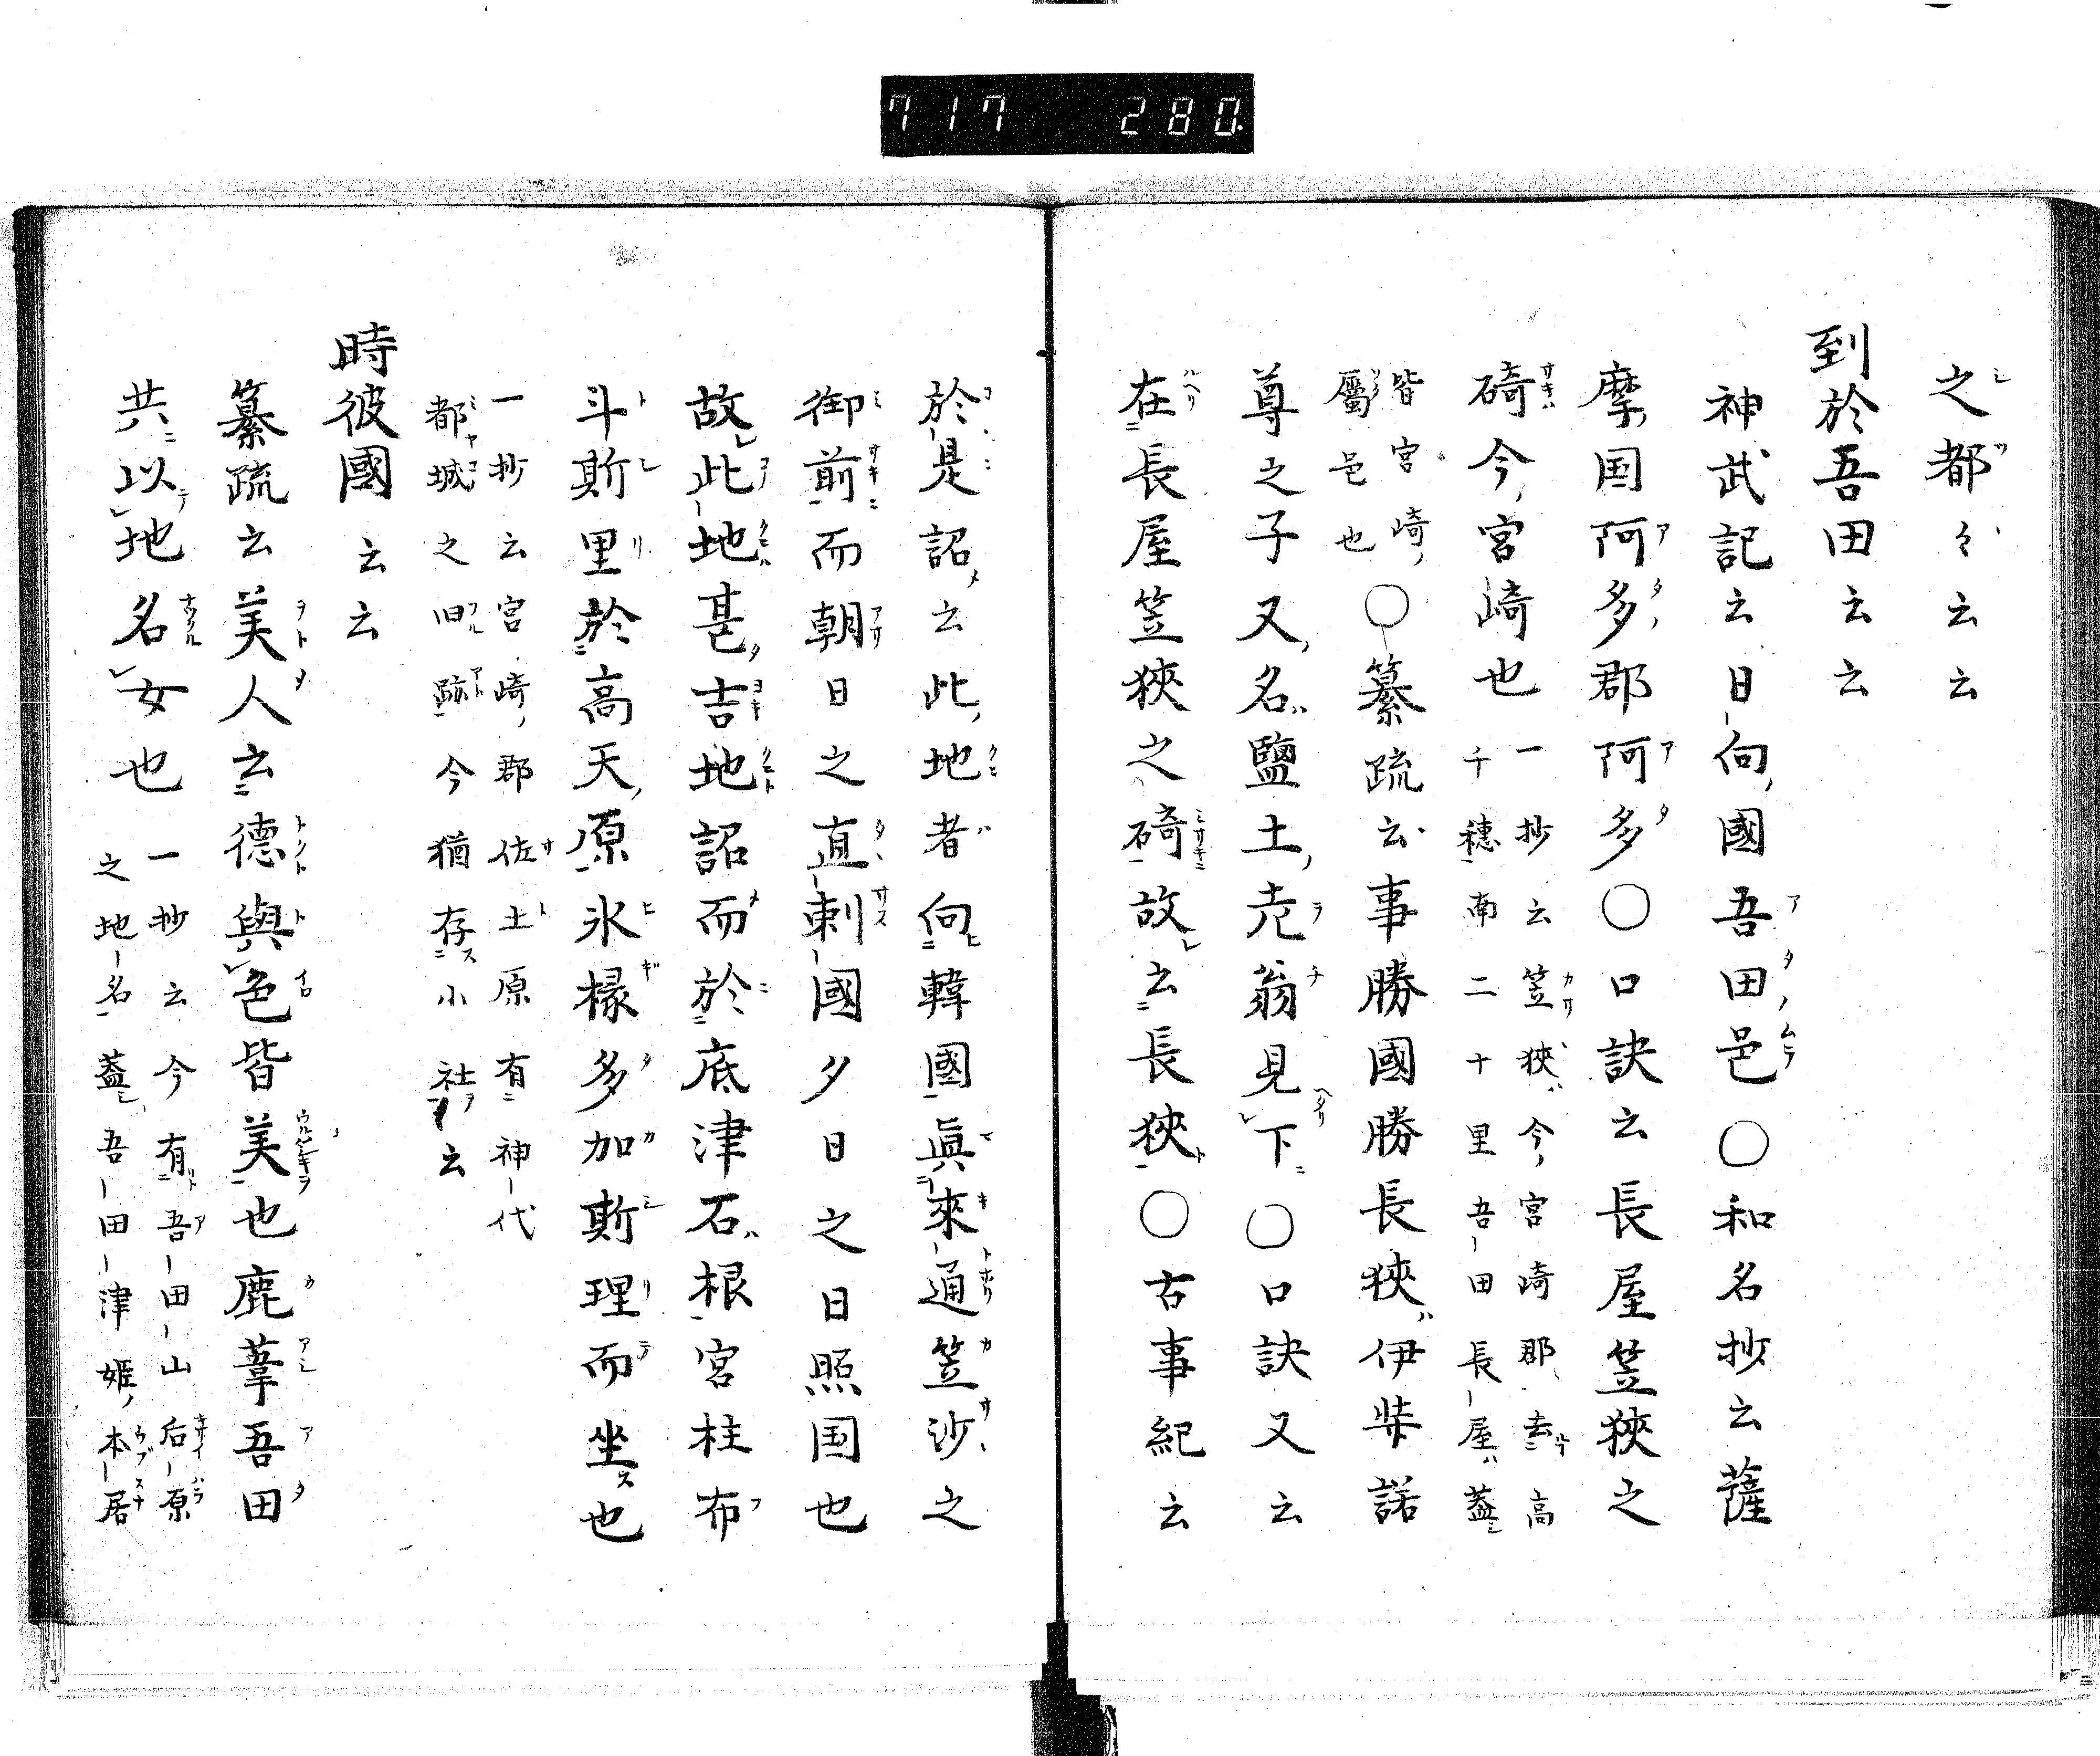 717 280
之都々云云
到於吾田云云
神武記云日向國吾田邑○和名抄云薩
摩国阿多郡阿多○口訣云長屋笠狹之
碕今宮崎也
一抄云笠狹今宮崎郡去高
千穗南二十里吾田長屋蓋
皆宮崎
屬邑也
○纂疏云事勝國勝長狹伊弉諾
尊之子又名鹽土老翁見下○口訣又云
在長屋笠狹之碕故云長狹○古事紀云
於是詔云此地者向韓國眞來通笠沙之
御前而朝日之直刺國夕日之日照国也
故此地甚吉地詔而於底津石根宮柱布
斗斯里於高天原氷椽多加斯理而坐也
一抄云宮崎郡佐土原有神代
都城之旧跡今猶存小社云
時彼國云云
纂疏云美人云德與色皆美也鹿葦吾田
共以地名名女也
一抄云今有吾田山后原
之地名蓋吾田津姫本居